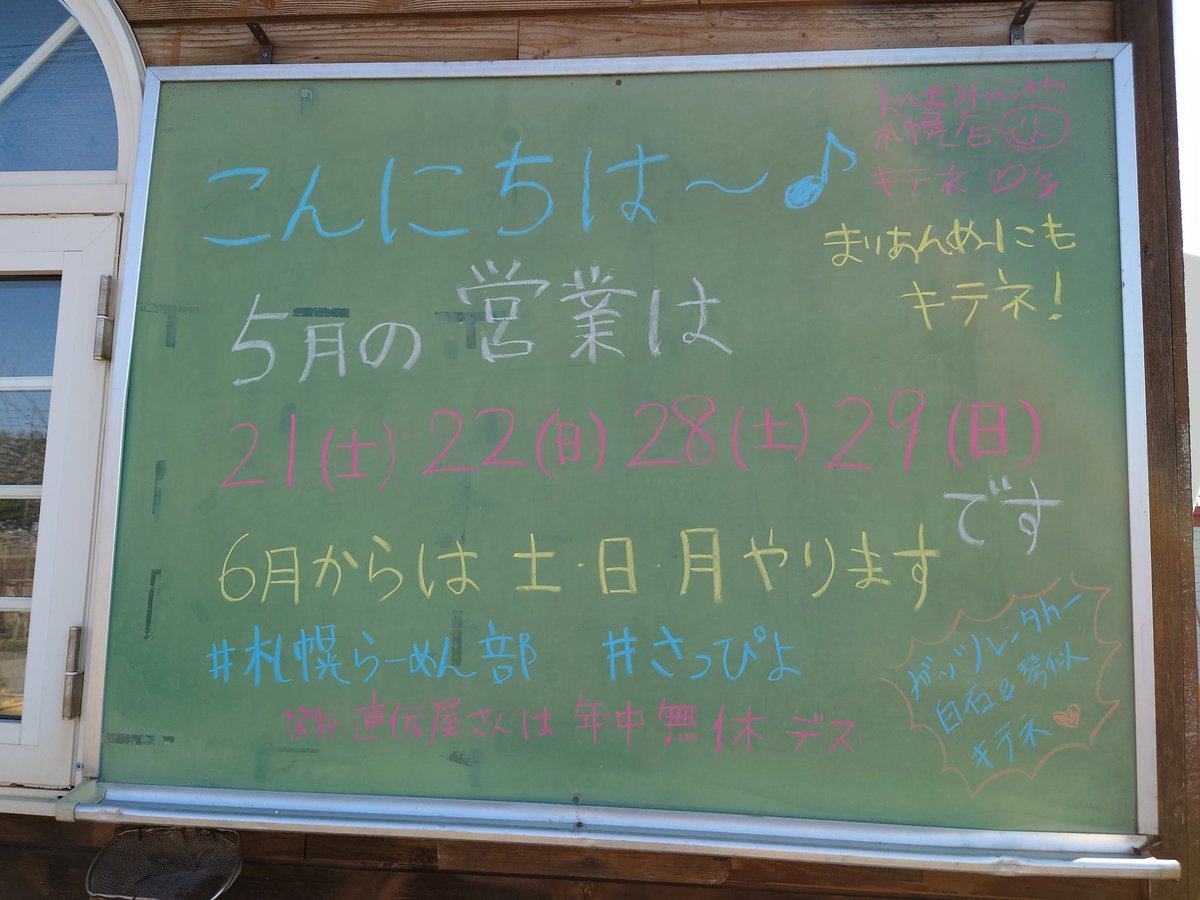 こんにちは〜♪
札幌店
キテネ♡
まりあんぬーにも
キテネ!
5月の営業は
21(土) 22(日) 28(土) 29(日)
です
6月からは 土・日・月やります
#札幌らーめん部 #さっぴよ
なお 直伝屋さんは 年中無休 デス
ガッツレンタカー
白石&琴似
キテネ♡